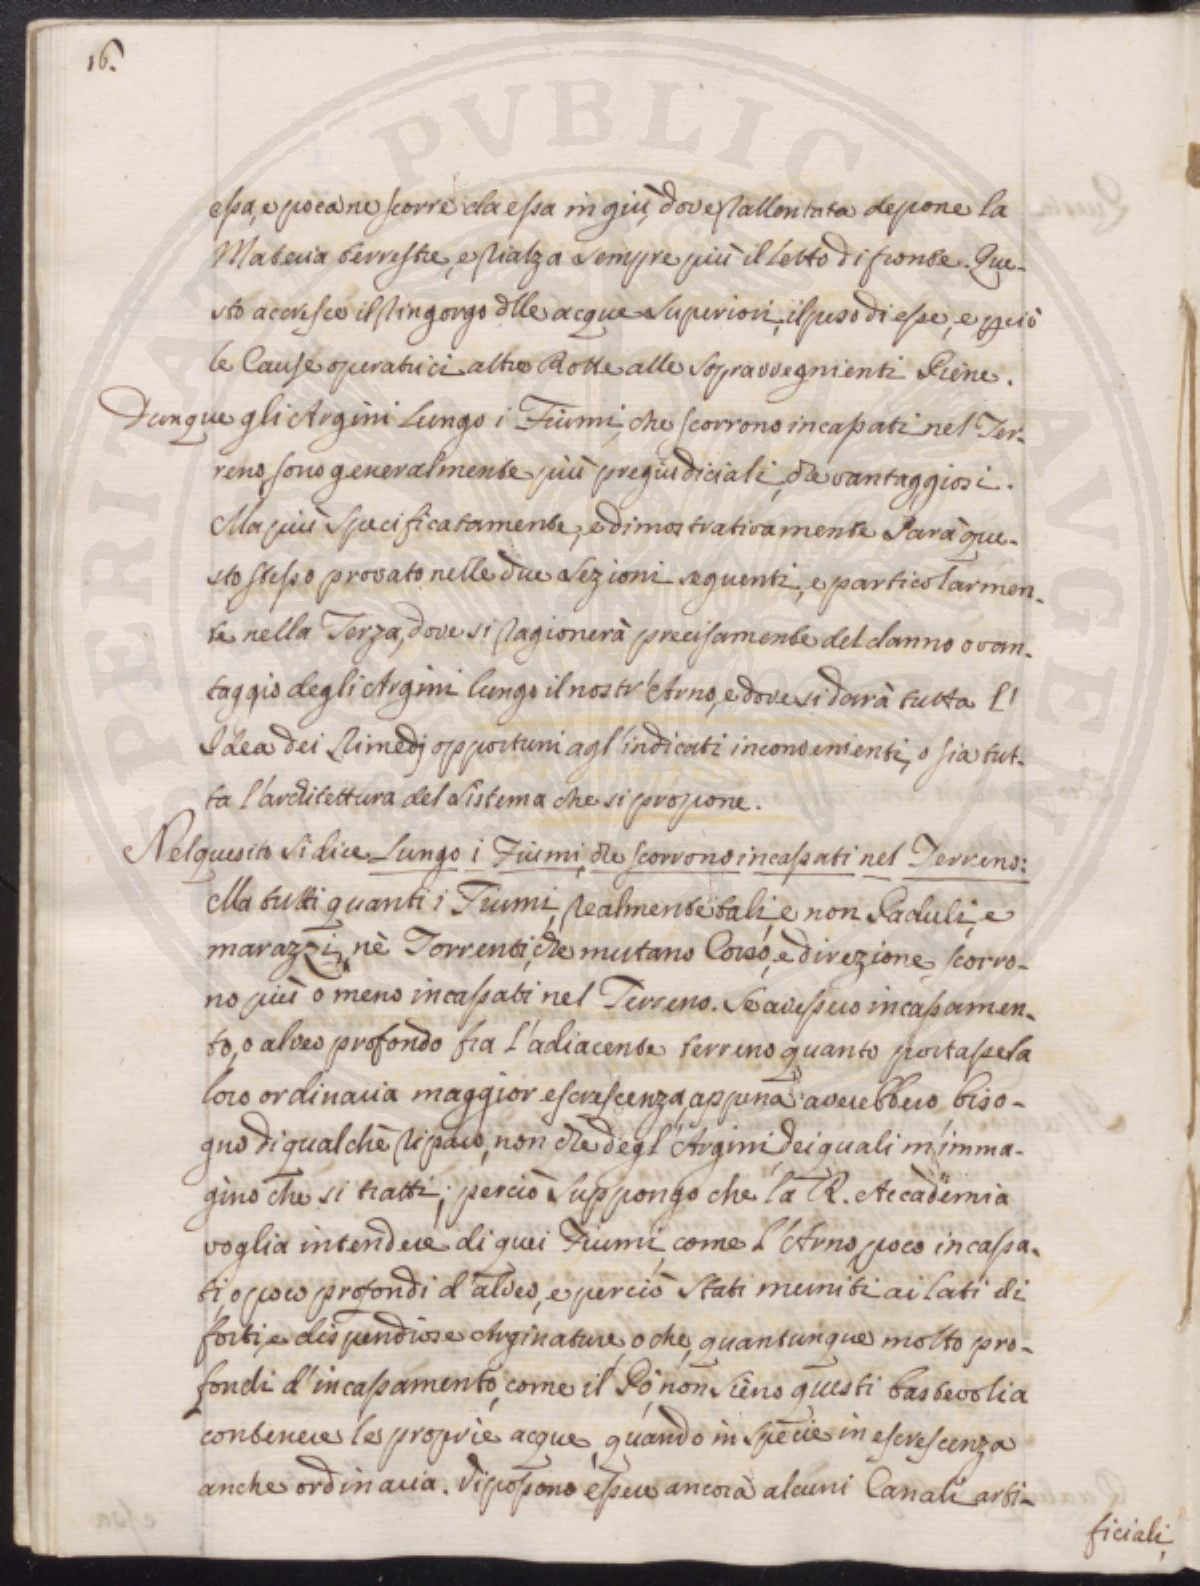 16.
essa, e poca ne scorre da essa in giù, dove rallentata depone la
Materia terrestre, e rialza sempre più il letto di fronte. Que-
sto accresce il ringorgo dlle acque superiori, il peso di esse, e pciò
le Cause operatrici altre Rotte alle sopravvegnienti Piene.
Dunque gli Argini lungo i Fiumi, che scorrono incassati nel Ter-
reno, sono generalmente più pregiudiciali, che vantaggiosi.
Ma più specificatamente, e dimostrativamente sarà que-
sto stesso provato nelle due Sezioni seguenti, e particolarmen-
te nella Terza, dove si ragionerà precisamente del danno o van-
taggio degli Argini lungo il nostr'Arno, e dove si darà tutta l'
Idea dei Rimedj opportuni agl'indicati inconvenienti, o sia tut-
ta l'architettura del Sistema che si propone.
Nel quesito si dice Lungo i Fiumi, che scorrono incassati nel Terreno:
Ma tutti quanti i Fiumi, realmente tali, e non Paduli, e
marazzi, nè Torrenti, che mutano Corso, e direzione, scorro-
no più o meno incassati nel Terreno. Se avessero incassamen-
to, o alveo profondo fra l'adiacente terreno quanto portasse la
loro ordinaria maggior escrescenza, appena averebbero biso-
gno di qualche riparo, non che degl'Argini, dei quali m'imma-
gino che si tratti; perciò suppongo che la R. Accademia
voglia intendere di quei Fiumi, come l'Arno, poco incassa-
ti, o poco profondi d'alveo, e perciò stati muniti ai lati di
forti, e dispendiose Arginature, o che, quantunque molto pro-
fondi d'incassamento, come il Pò, non sieno questi bastevoli a
contenere le proprie acque, quando in specie in escrescenza
anche ordinaria. Vi possono essere ancora alcuni Canali arti-
ficiali,
PERITAT PVBLICA AVGEN